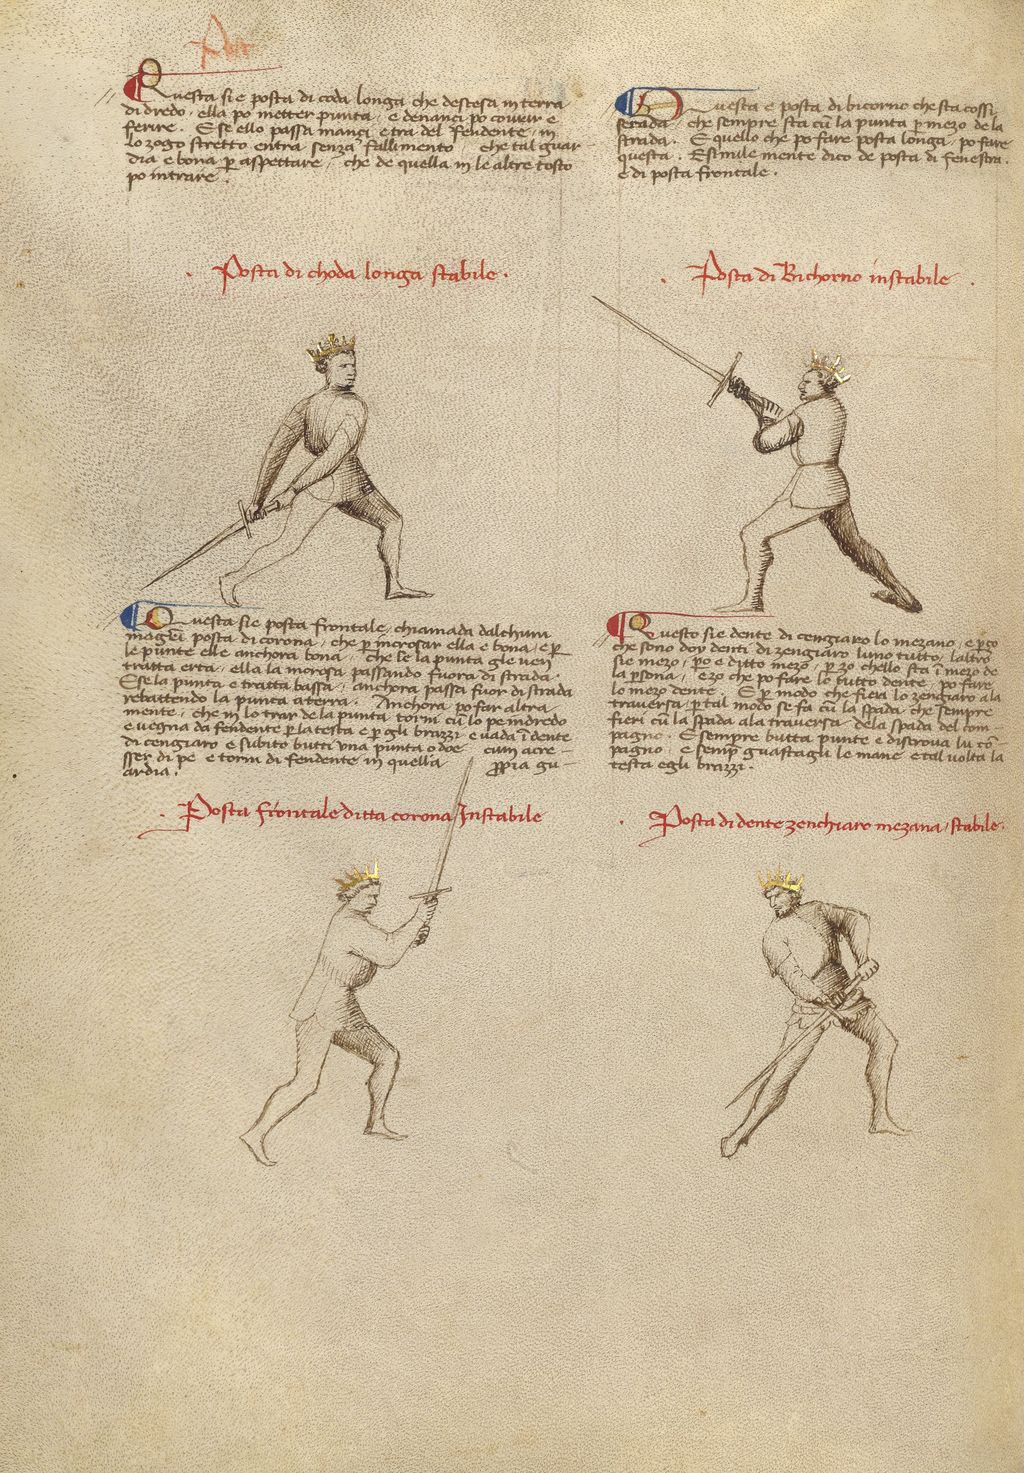 Questa sie posta di coda longa che destesa in terra
di dredo, ella po metter punta, e denanci po covrir e
ferire. E se ello passa inanci e tra del fendente, in
lo zogo stretto entra senza fallimento che tal guar-
dia e bona per aspettare, che de quella in le altre tosto
po intrare.
Posta di choda longa stabile.
Questa e posta di bicorno che sta cossi
serada che sempre sta cu la punta p mezo de la
strada. E quello che po fare posta longa, po fare
questa. E simile mente dico de posta di fenestra.
e di posta frontale.
Posta di Bichorno instabile.
Questa sie posta frontale, chiamada dalchun
magistri posta di corona, che p incrosar ella e bona, e p
le punte elle anchora bona, che se la punta gle ven
tratta erta, ella la incrosa passando fuora di strada.
E se la punta e tratta bassa, anchora passa fuor di strada
rebattendo la punta a terra. Anchora po far altra
mente, che in lo trar de la punta torni cu lo pe indredo
e vegna da fendente p la testa e p gli brazzi e vada i dente
di cengiaro e subito butti una punta o doe cum acre-
sser di pe e torni di fendente in quella propia gu-
ardia.
Posta frontale ditta corona Instabile
Questo sie dente di cengiaro lo mezano, e pço
che sono doy denti di zengiaro luno tutto, laltro
sie mezo, po e ditto mezo, p zo chello sta i mezo de
la psona, e zo che po fare lo tutto dente, po fare
lo mezo dente. E p modo che fieri lo zengiaro a la
traversa, p tal modo se fa cu la spada che sempre
fieri cu la spada ala traversa dela spada del com-
pagno. E sempre butta punte e discrova lu co-
pagno, e semp guastagli le mane e tal volta la
testa e gli brazzi.
Posta di dente zenchiaro mezana, stabile.